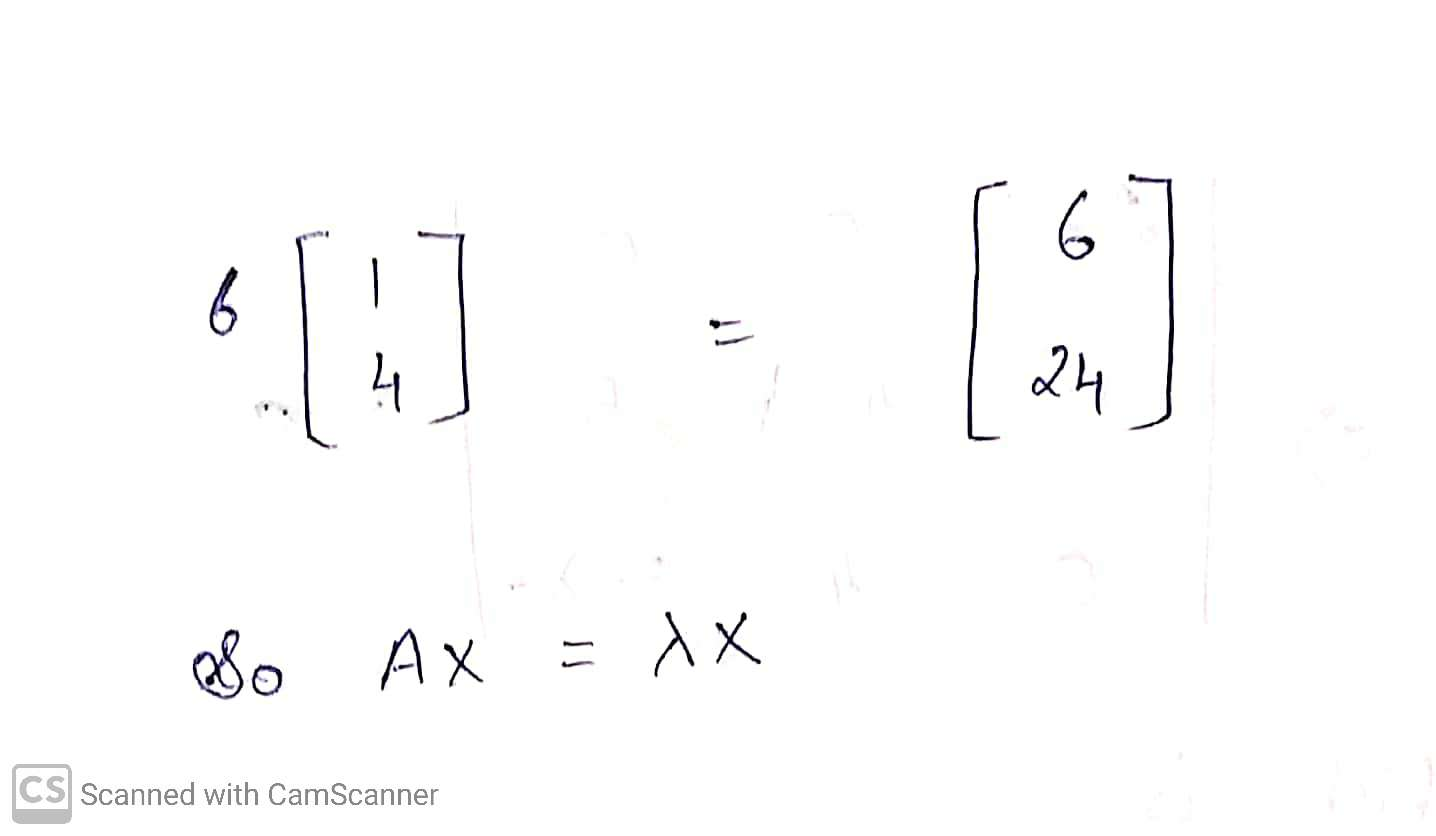 6 [ 1 4 ] = [ 6 24 ]
So AX = λX
CS Scanned with CamScanner